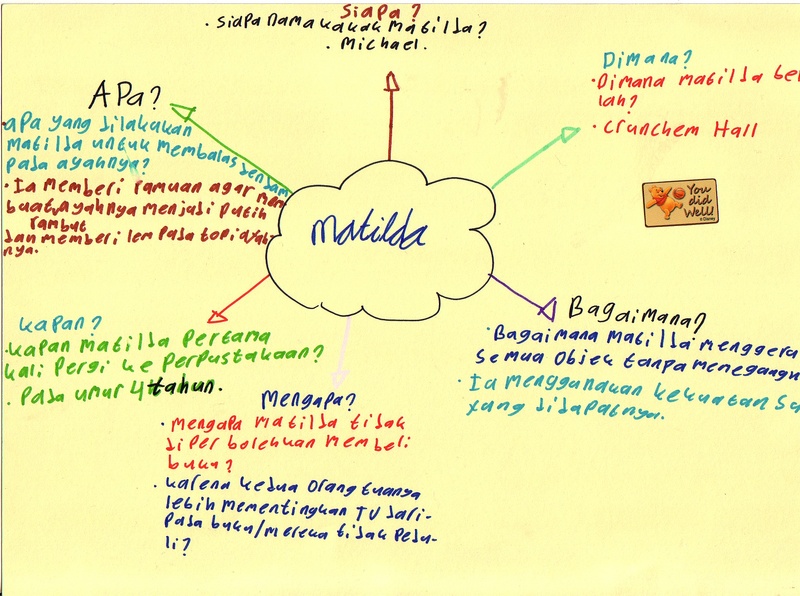 Siapa?
. Siapa nama kakak Matilda?
. Michael.
Dimana?
. Dimana Matilda ber
lah?
. Crunchem Hall
APa?
. apa yang dilakukan
Matilda untuk membalas dendam
pada ayahnya?
. Ia memberi ramuan agar mem
buat ayahnya menjadi putih
rambut
dan memberi lem pada topi ayah
nya.
Matilda
You
did
Well!
Kapan?
. Kapan Matilda Pertama
kali Pergi ke Perpustakaan?
. Pada umur 4 tahun.
Mengapa?
. Mengapa Matilda tidak
diper bolehkan membeli
buku?
. Karena kedua orang tuanya
lebih mementingkan TV dari-
pada buku/mereka tidak pedu-
li?
Bagaimana?
. Bagaimana Matilda menggera
semua Objek tanpa menegangn
. Ia menggunakan kekuatan Su
yang didapatnya.